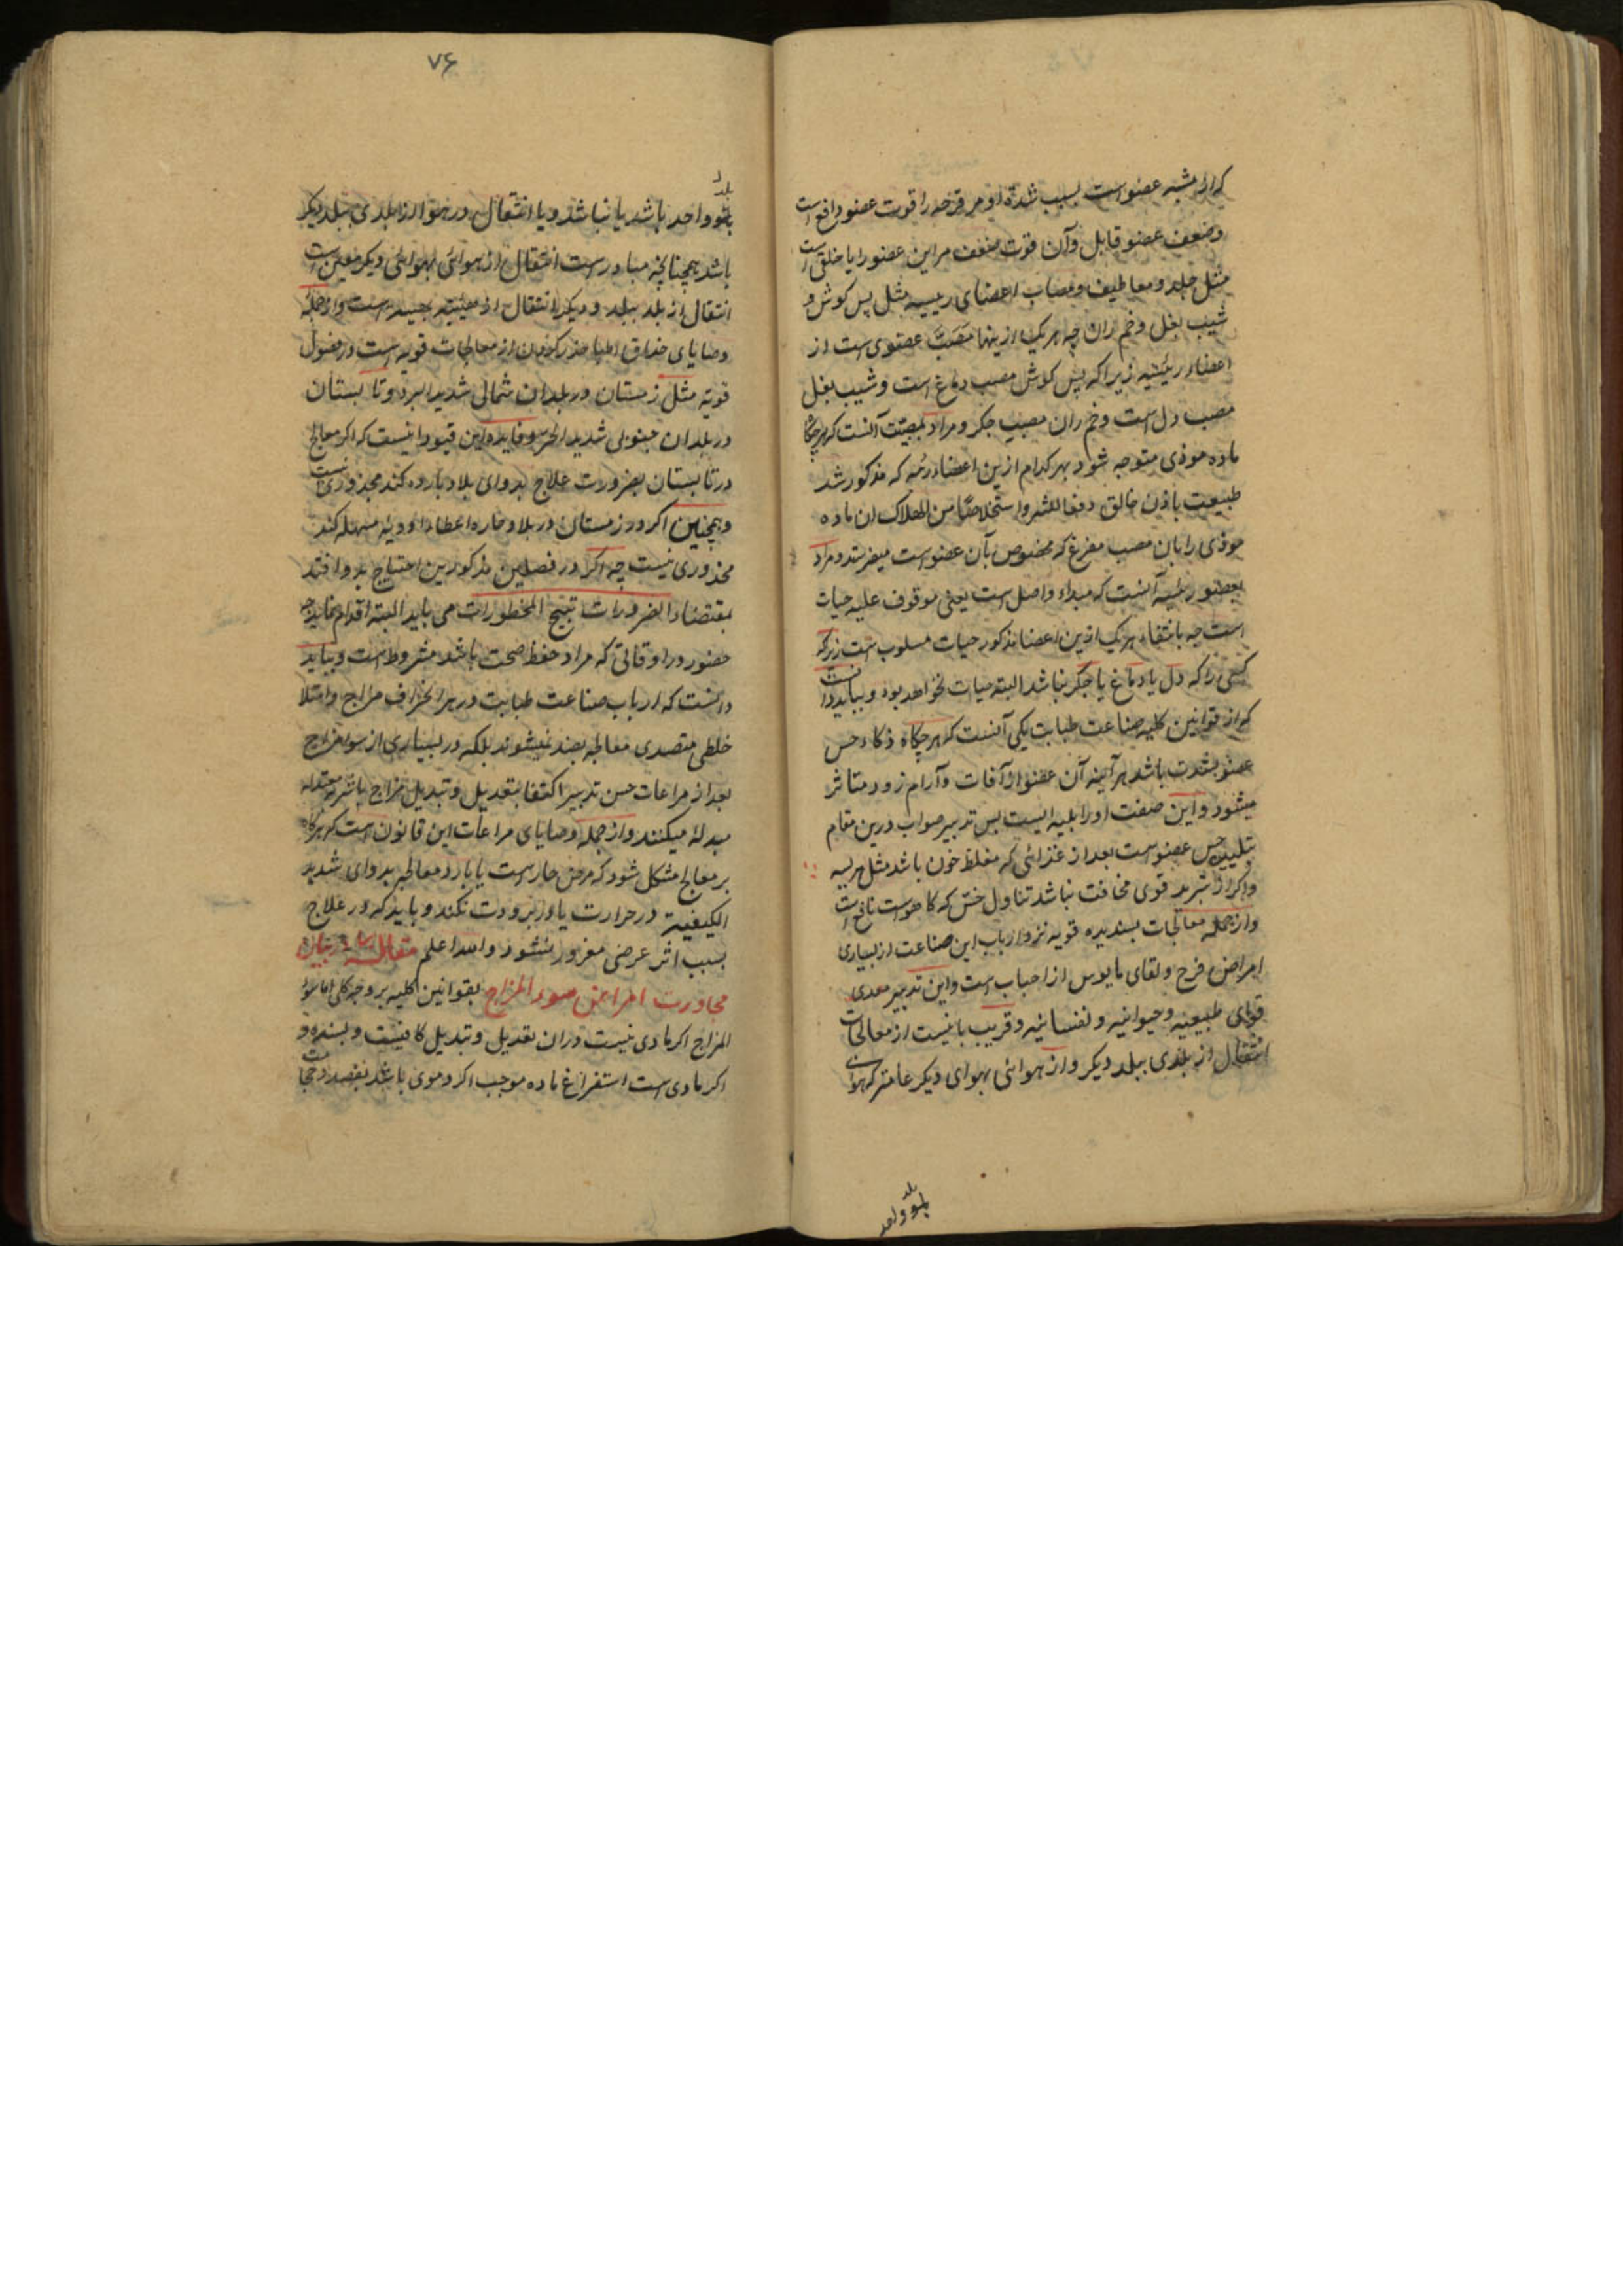 که آن مشبه عضو است بسبب شدة او مر قرحه را قوت عضو دافع است
وضعف عضو قابل وآن قوت ضعف مر این عضو را یا خلقی است
مثل جلد ومعاطیف ومصاب اعضای رییسه مثل پس کوش و
شیب بغل وخم ران چه هر یک ازینها مَصَبّ عضوی است از
اعضاء رئیسه زیرا که پس کوش مصب دماغ است وشیب بغل
مصب دل است وخم ران مصبِ جکر ومراد بمصبّت آنست که هرچکاه
ماده موذی متوجه شود بهر کدام ازین اعضاء که مذکور شد
طبیعت باذن خالق دفعا للشر واستخلاصًا من الهلاک ان ماده
موذی را بان مصب مفرغ که مخصوص بآن عضو است میفرستد ومراد
بعضو رئیسه آنست که مبداء واصل است یعنی موقوف علیه حیات
است چه بانتفاء هر یک ازین اعضا مذکور حیات مسلوب است زیرا که
کسی را که دل یا دماغ یا جکر نباشد البته حیات نخواهد بود وبباید دانست
که از قوانین کلیه صناعت طبابت یکی آنست که هرچکاه ذکاء حس
عضو بشدت باشد هر آئینه آن عضو از آفات وآرام زود متاثر
میشود واین صفت اورا بلیه ایست بس تدبیر صواب درین مقام
تبلید حس عضو است بعد از غذائی که مغلظ خون باشد مثل هریسه
واکر از تبرید قوی مخافت نباشد تناول خش که کاهو است نافع است
واز جمله معالجات بسندیده قویه نزد ارباب این صناعت از بسیاری
امراض فرح ولقای مایوس از احباب است واین تدبیر معدی
قوای طبیعیه وحیوانیه ونفسانیه وقریب باینست از معالجات
انتقال از بلدی ببلد دیکر واز هوائی بهوای دیکر عامتر که هوای
بلد واحد
۷۶
بلد
واحد باشد یا نباشد ویا انتقال در هوا از بلدی ببلد دیکر
باشد همچنانچه مبادر است انتقال از هوائی بهوائی دیکر معین است
انتقال از بلد ببلد ودیکر انتقال از هیئته بهیئه است واز جمله
وصایای حذاق اطبا حذر کردن از معالجات قویه است در فصول
قویه مثل زمستان در بلدان شمالی شدید البرد وتابستان
در بلدان جنوبی شدید الحر وفایده این قیود اینست که اکر معالج
در تابستان بضرورت علاج بدوای بلاد بارده کند محذوری نیست
وهمچنین اکر در زمستان در بلاد حاره اعطاء ادویه مسهله کند
محذوری نیست چه اکر در فصلین مذکورین احتیاج بدوا افتد
بمقتضاء الضرورات تبیح المحظورات می باید البته اقدام نماید چه
حضور در اوقاتی که مراد حفظ صحت باشد مشروط است وبباید
دانست که ارباب صناعت طبابت در هر انحراف مزاج وامتلا
خلطی متصدی معالجه بضد نمیشوند بلکه در بسیاری از سوء مزاج
بعد از مراعات حسن تدبیر اکتفا بتعدیل وتبدیل مزاج باشربه معتدله
مبدله میکنند واز جمله وصایای مراعات این قانون است که هرکاه
بر معالج مشکل شود که مرض حار است یا بارد معالجه بدوای شدید
الکیفیة در حرارت یا در برودت نکند وباید که در علاج
بسبب اثر عرضی مغرور نشود والله اعلم مقاله در بیان
مجاورت امراض سوء المزاج بقوانین کلیه بر وجه کلی اما سوء
المزاج اکر مادی نیست دران تعدیل وتبدیل کافیست وبسنده و
اکر مادی است استفراغ ماده موجب اکر دموی باشد بفصد وحجامت